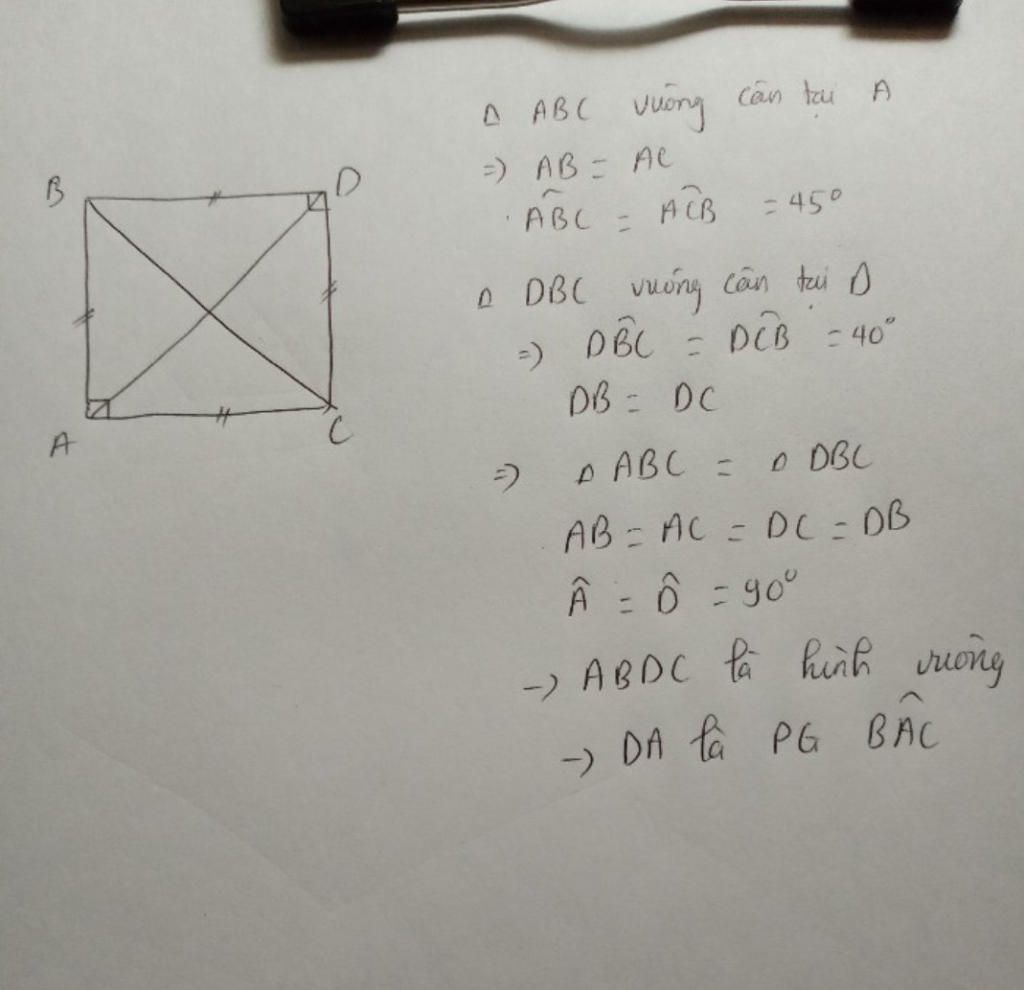 B
D
A
C
Δ ABC vuông cân tại A
=) AB = AC
. ABC̑ = AC̑B = 45°
Δ DBC vuông cân tại D
=) DB̑C = DC̑B = 40°
DB = DC
=) Δ ABC = Δ DBC
AB = AC = DC = DB
Â = D̂ = 90°
-) ABDC là hình vuông
-) DA là PG BÂC